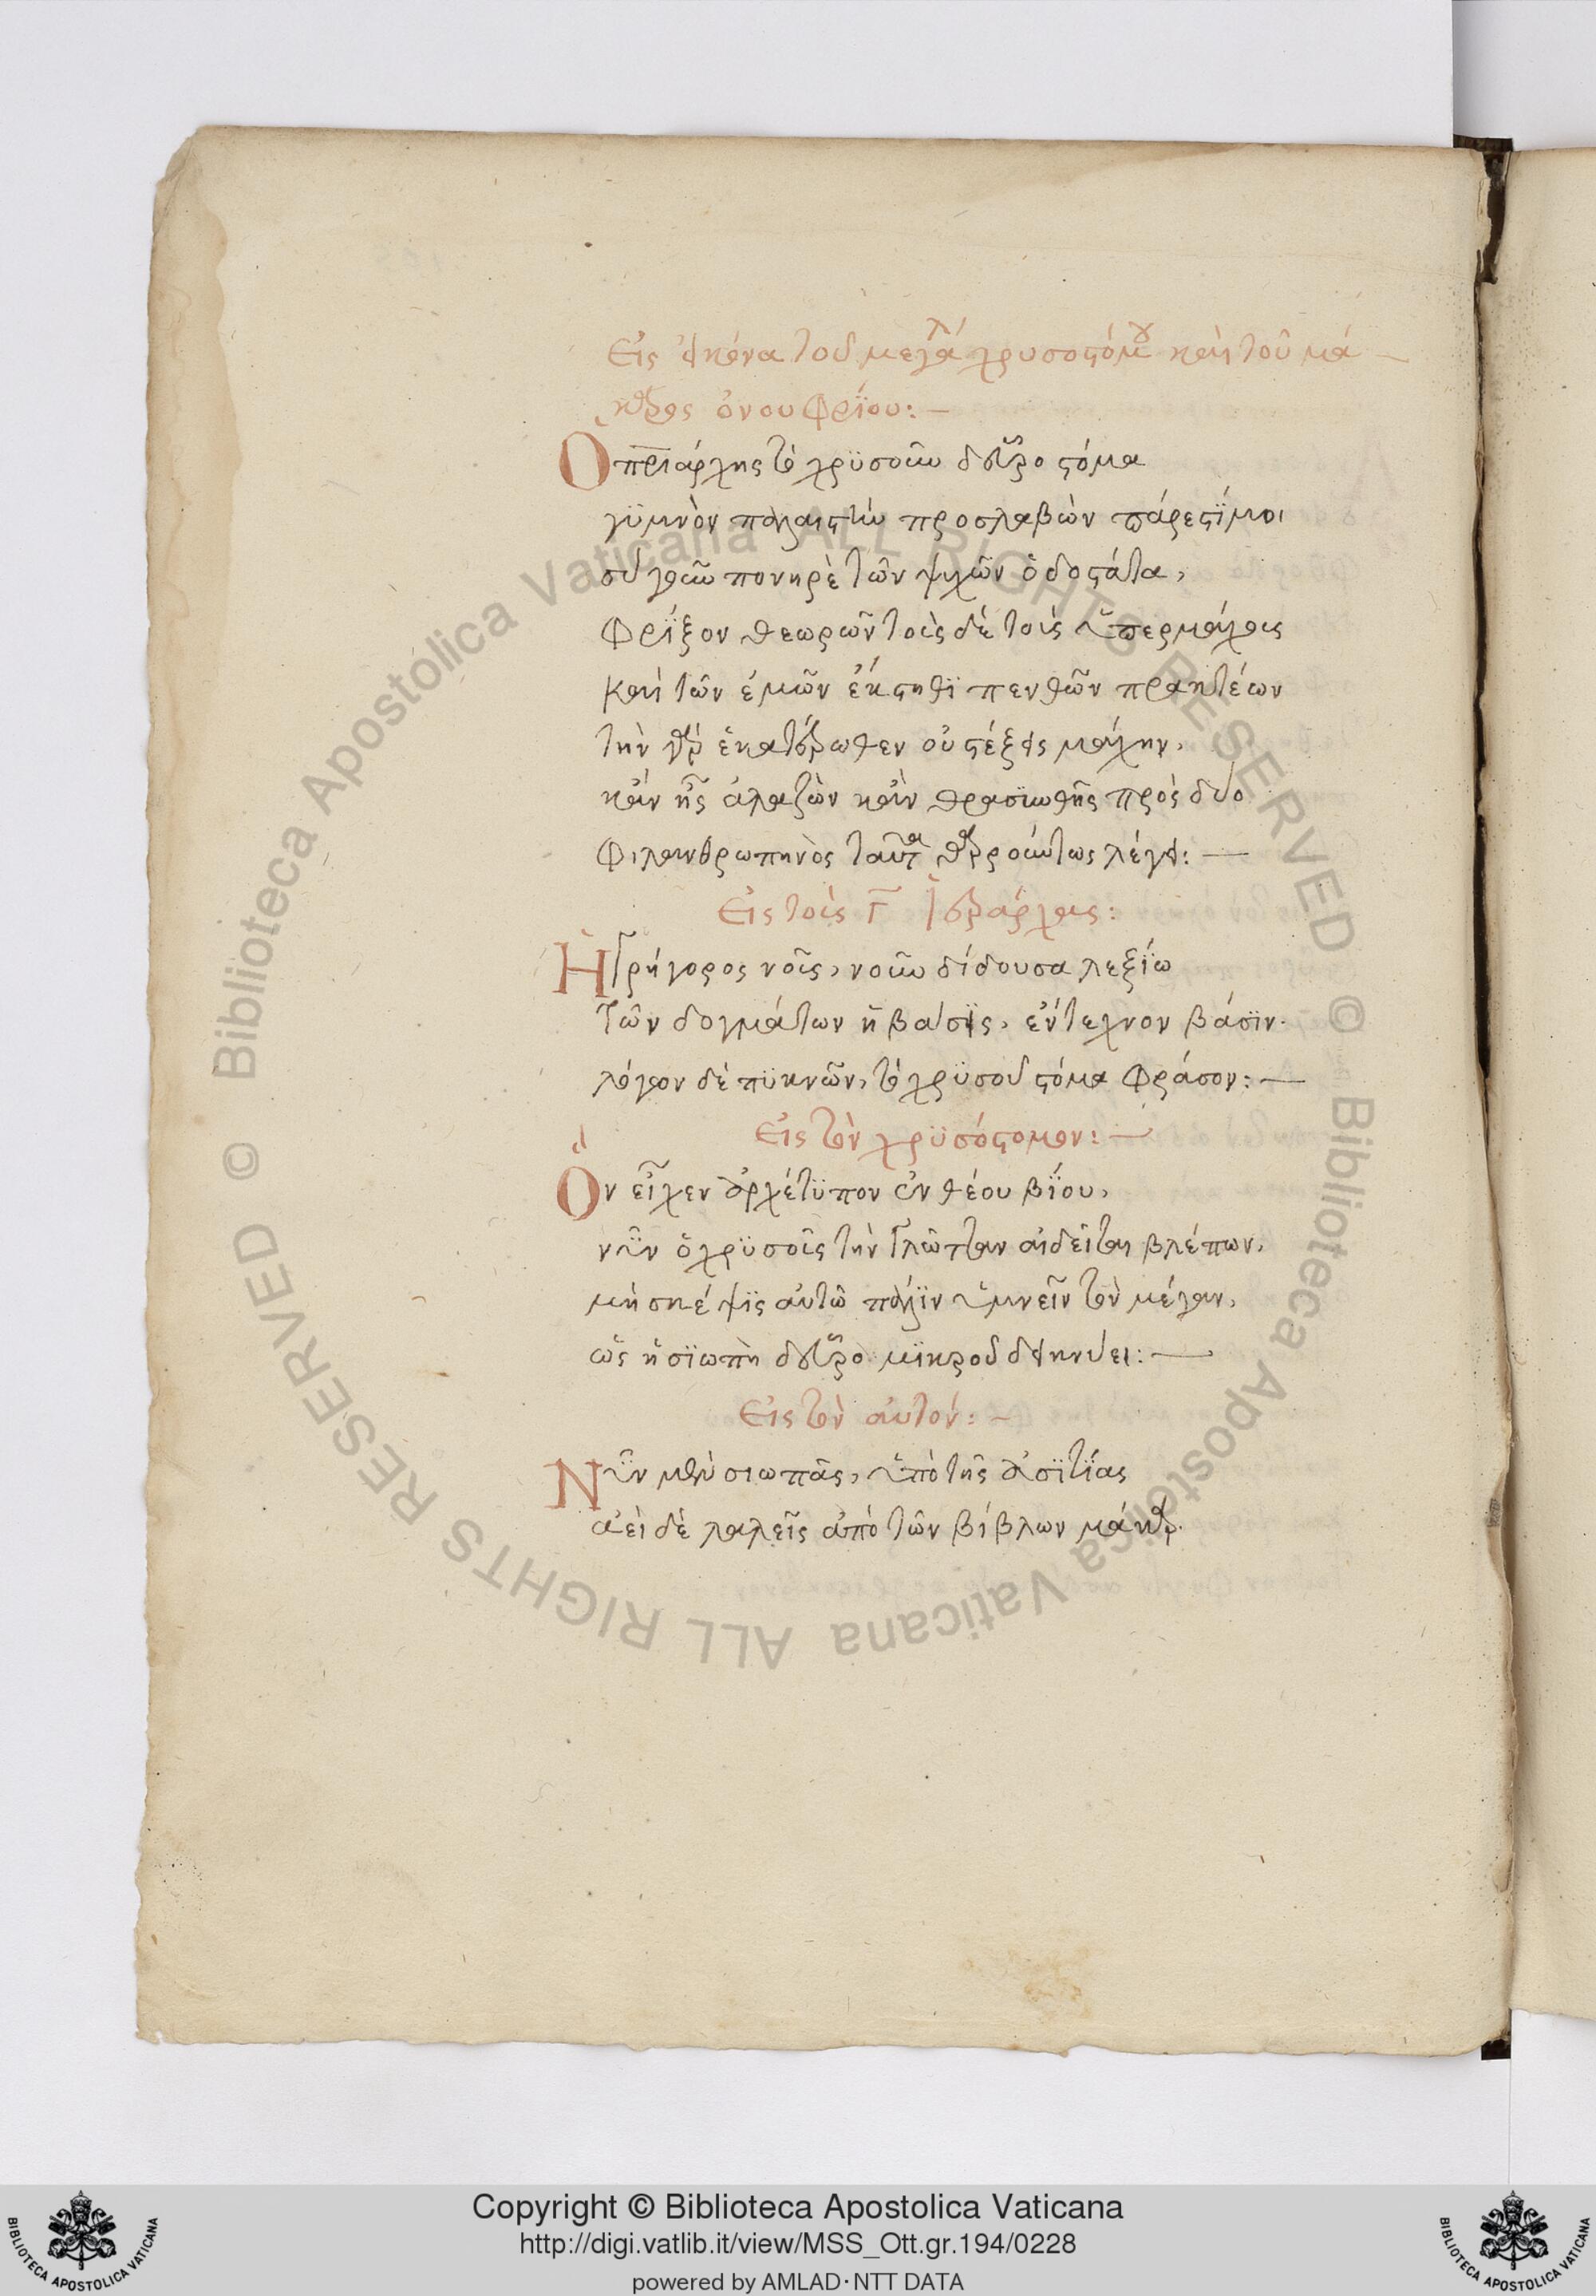 Εἰς εἰκόνα τοῦ μεγάλ χρυσοστόμου καὶ τοῦ μά
καρος ὀνουφρΐου:
Ὁ πριάρχης τὸ χρϋσοῦν δεῦρο στόμα
γϋμνὸν παλαιστὴν προσλαβὼν πάρεστϊ μοι
σὺ γοῦν πονηρὲ τῶν ψυχῶν ὁδοστάτα,
Φρΐξον θεωρῶν τοὺς δὲ τοὺς ὑπερμάχους
καὶ τῶν ἐμῶν ἔκστηθϊ πενθῶν πρακτέων
τὴν γὰρ ἑκατέρωθεν οὐ στέξεις μάχην,
κἂν ᾖς ἀλαζὼν κἂν θρασϋνθῇς πρὸς δύο
Φιλανθρωπηνὸς ταῦτα θαρρούντως λέγει:
Εἰς τοὺς Γ Ἱεράρχας:
Ἡ Γρήγορος νοῦς, νοῦν δίδουσα λεξΐω
τῶν δογμάτων ἡ βασϊς, ἔντεχνον βάσϊν.
λόγον δὲ πϋκνῶν, τὸ χρϋσοῦ στόμα φράσον:
Εἰς τὸν χρϋσόστομον:
Ὃν εἶχεν ἀρχέτϋπον ἐνθέου βΐου,
νῦν ὁ χρϋσοῦς τὴν Γλῶτταν αἰδεῖται βλέπων,
μὴ σκέψϊς αὐτῶ πάλϊν ὑμνεῖν τὸν μέγαν,
ὡς ἡ σϊωπὴ δεῦρο μϊκροῦ δεικνύει:
Εἰς τὸν αὐτόν:
Νῦν μὲν σιωπᾶς, ὑπὸ τῆς ἀσϊτΐας
ἀεὶ δὲ λαλεῖς ἀπὸ τῶν βίβλων μάκαρ.
Copyright © Biblioteca Apostolica Vaticana
http://digi.vatlib.it/view/MSS_Ott.gr.194/0228
powered by AMLAD·NTT DATA
© Biblioteca Apostolica Vaticana ALL RIGHTS RESERVED
© Biblioteca Apostolica Vaticana ALL RIGHTS RESERVED
BIBLIOTECA APOSTOLICA VATICANA
BIBLIOTECA APOSTOLICA VATICANA